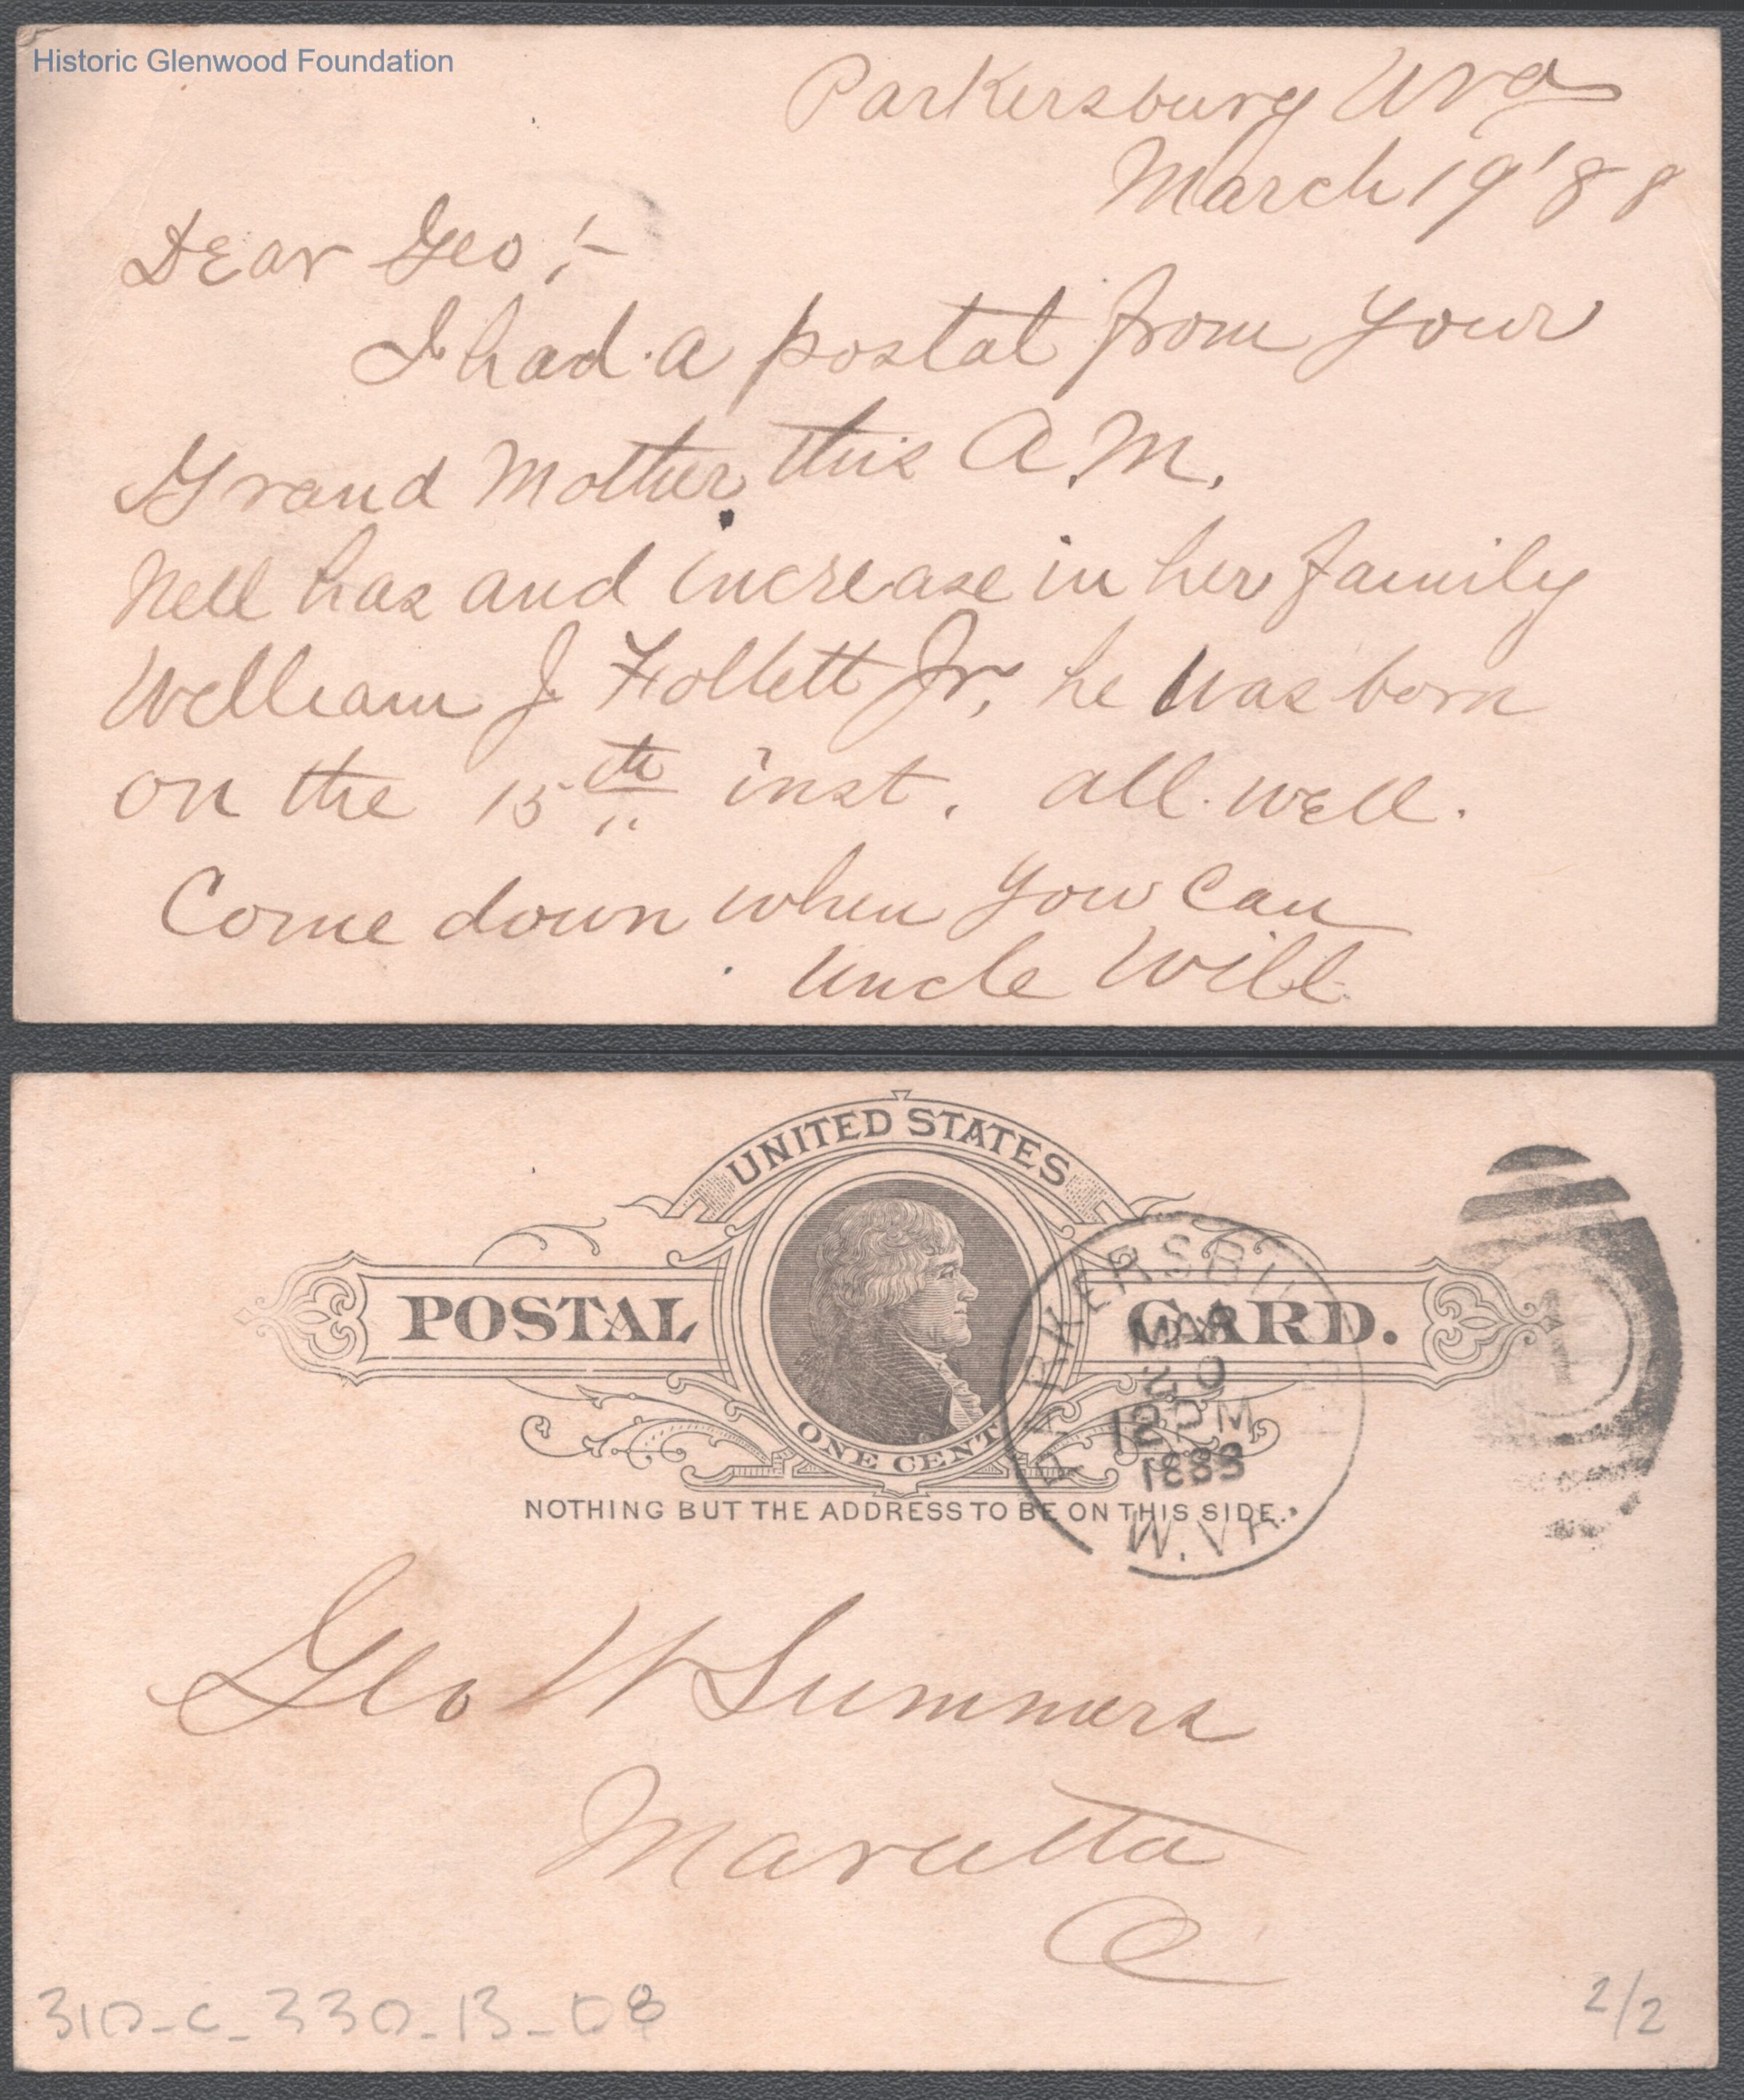 Historic Glenwood Foundation
Parkersburg Wva
March 19 '88
Dear Geo;-
I had a postal from your
Grand Mother this A.M.
Nell has and increase in her family
William J Follett Jr, he was born
on the 15th inst. all well.
Come down when you can
Uncle Will
UNITED STATES
POSTAL CARD.
ONE CENT
NOTHING BUT THE ADDRESS TO BE ON THIS SIDE.
PARKERSBU
MAR
20
12 M
1888
W.VA.
1
Geo W Summers
Marietta
O
310-C-330-13-08
2/2